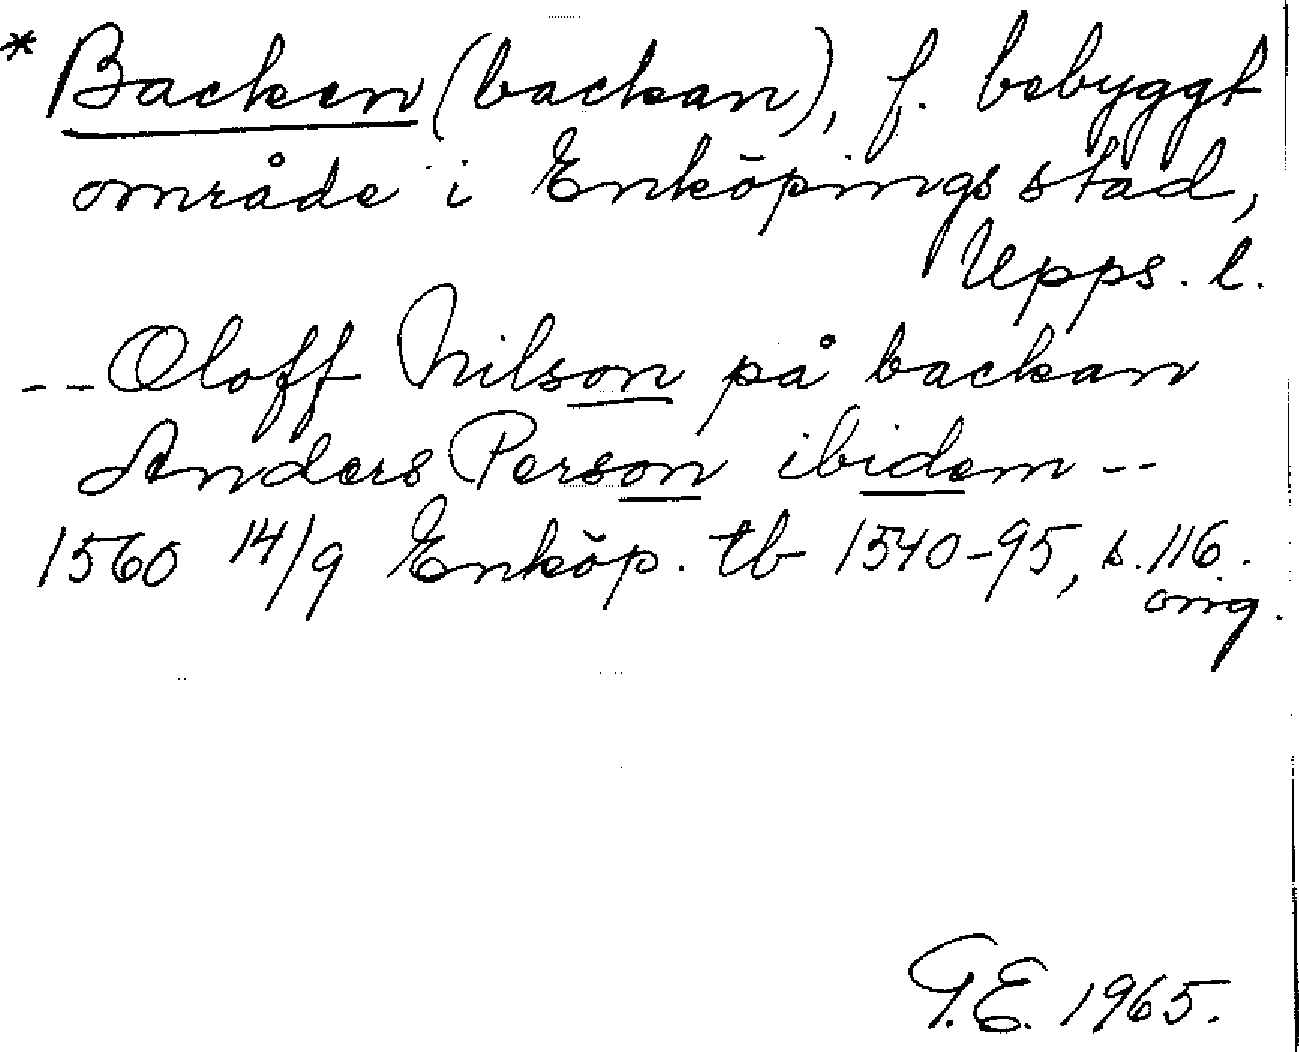 * Backen (backan), f. bebyggt
område i Enköpings stad,
Upps. l.
-- Oloff Nilson på backan
Anders Person ibidem --
1560 14/9 Enköp. tb 1540-95, s. 116.
orig.
G.E. 1965.